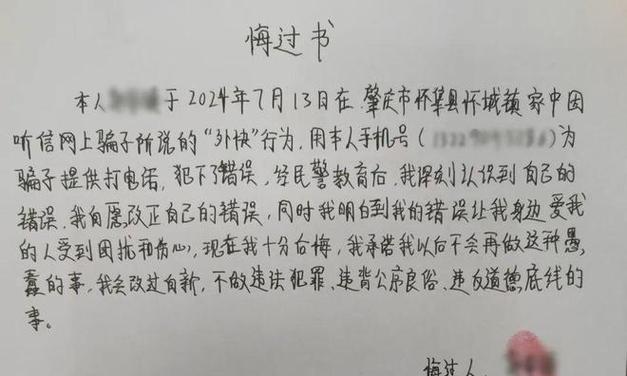 悔过书
本人 于2024年7月13日在肇庆市怀集县怀城镇家中因
听信网上骗子所说的“外快”行为,用本人手机号( )为
骗子提供打电话,犯下了错误,经民警教育后,我深刻认识到自己的
错误,我自愿改正自己的错误,同时我明白到我的错误让我身边爱我
的人受到困扰和伤心,现在我十分后悔,我承诺我以后不会再做这种愚
蠢的事,我会改过自新,不做违法犯罪、违背公序良俗、违反道德底线的
事。
悔过人: